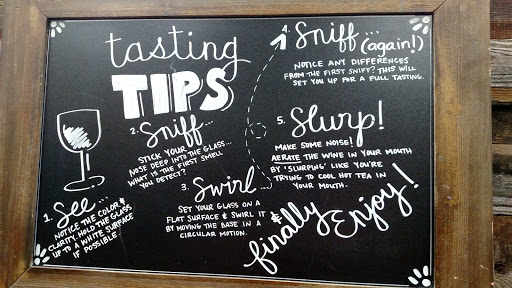 tasting
TIPS
1. See...
NOTICE THE COLOR &
CLARITY. HOLD THE GLASS
UP TO A WHITE SURFACE
IF POSSIBLE.
2. Sniff...
STICK YOUR
NOSE DEEP INTO THE GLASS...
WHAT IS THE FIRST SMELL
YOU DETECT?
3. Swirl...
SET YOUR GLASS ON A
FLAT SURFACE & SWIRL IT
BY MOVING THE BASE IN A
CIRCULAR MOTION.
4. Sniff...
(again!)
NOTICE ANY DIFFERENCES
FROM THE FIRST SNIFF? THIS WILL
SET YOU UP FOR A FULL TASTING.
5. Slurp!
MAKE SOME NOISE!
AERATE THE WINE IN YOUR MOUTH
BY 'SLURPING' LIKE YOU'RE
TRYING TO COOL HOT TEA IN
YOUR MOUTH.
& finally Enjoy!